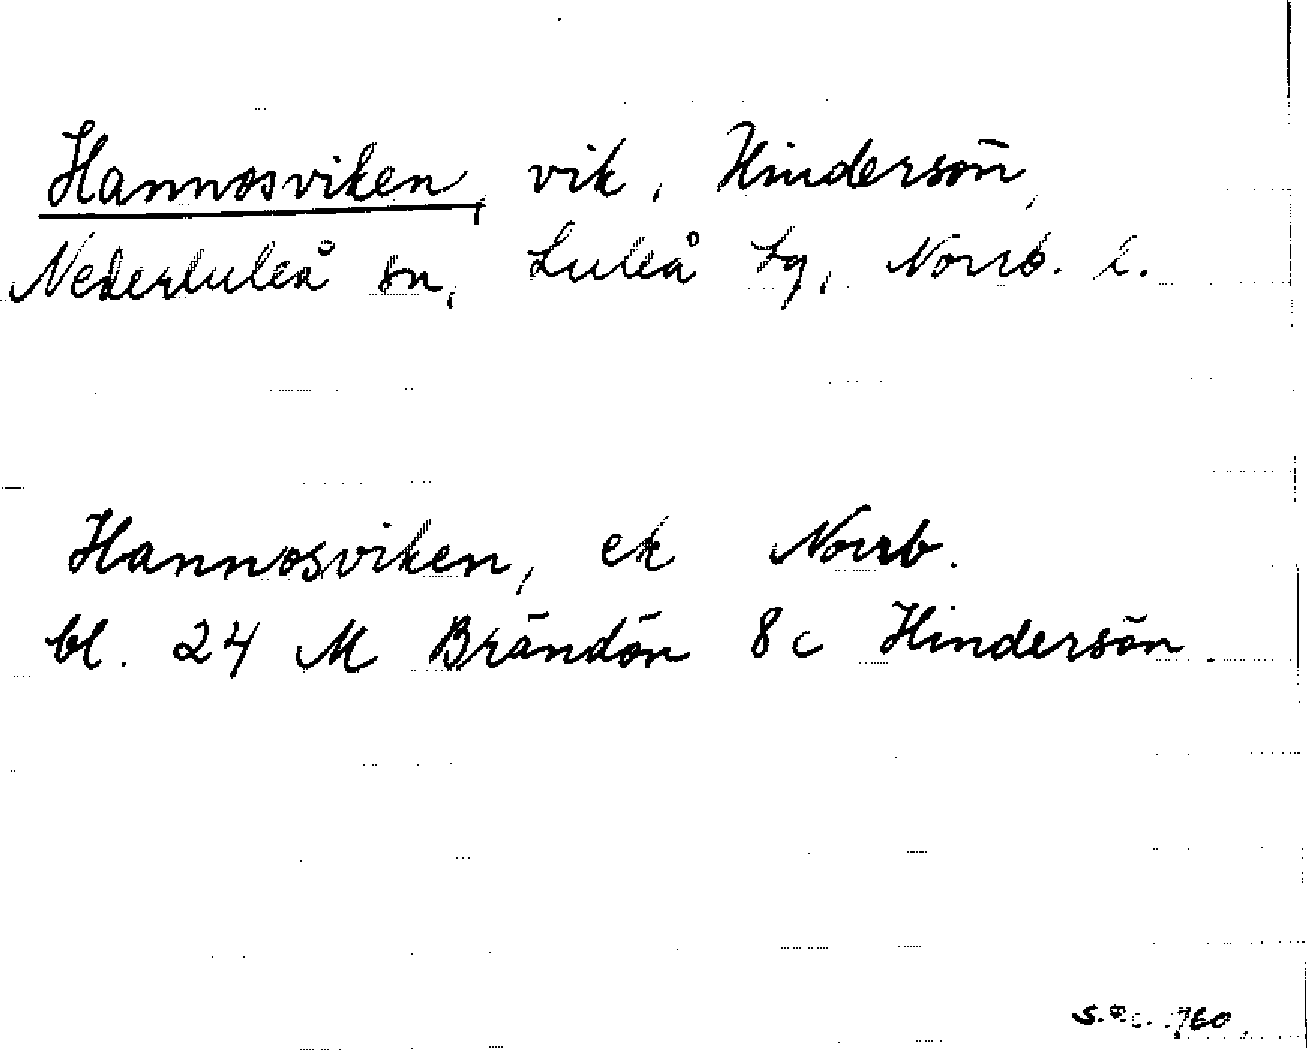 Hannosviken, vik, Hindersön,
Nederluleå sn, Luleå tg, Norrb. l.
Hannosviken, ek Norrb.
bl. 24 M Brändön 8c Hindersön.